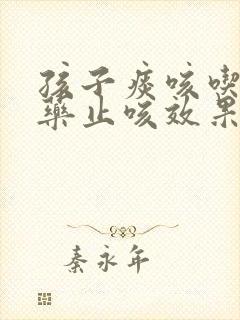 孩子痰咳喫
藥止咳效果
秦永年